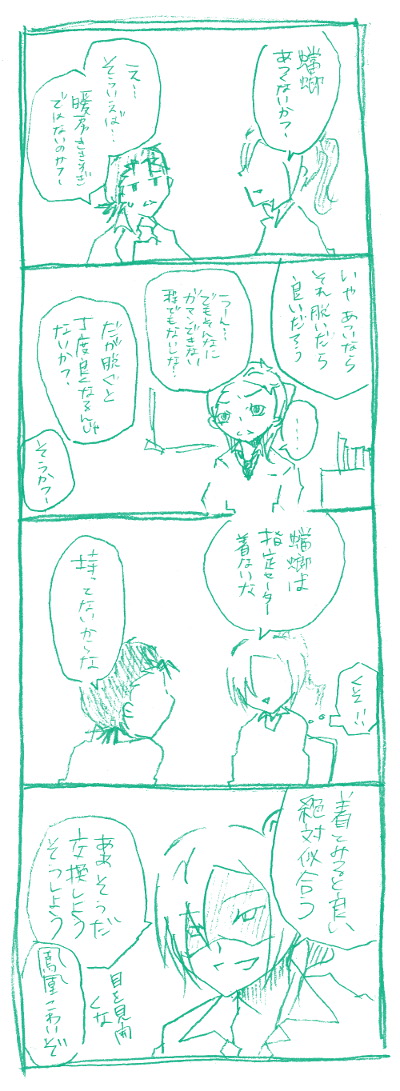 蟷螂
あつくないか?
えー…
そういえば…
暖房きかせすぎ
ではないのか?
いやあついなら
それ脱いだら
良いだろう
うーん…
でもそんなに
ガマンできない
程でもないしな…
…
だが脱ぐと
丁度良くなるんじゃ
ないか?
そうか?
蟷螂は
指定セーター
着ないな
持ってないからな
くそ!!
着てみるといい
絶対似合う
ああそうだ
交換しよう
そうしよう
目を見開
くな
鳳凰こわいぞ